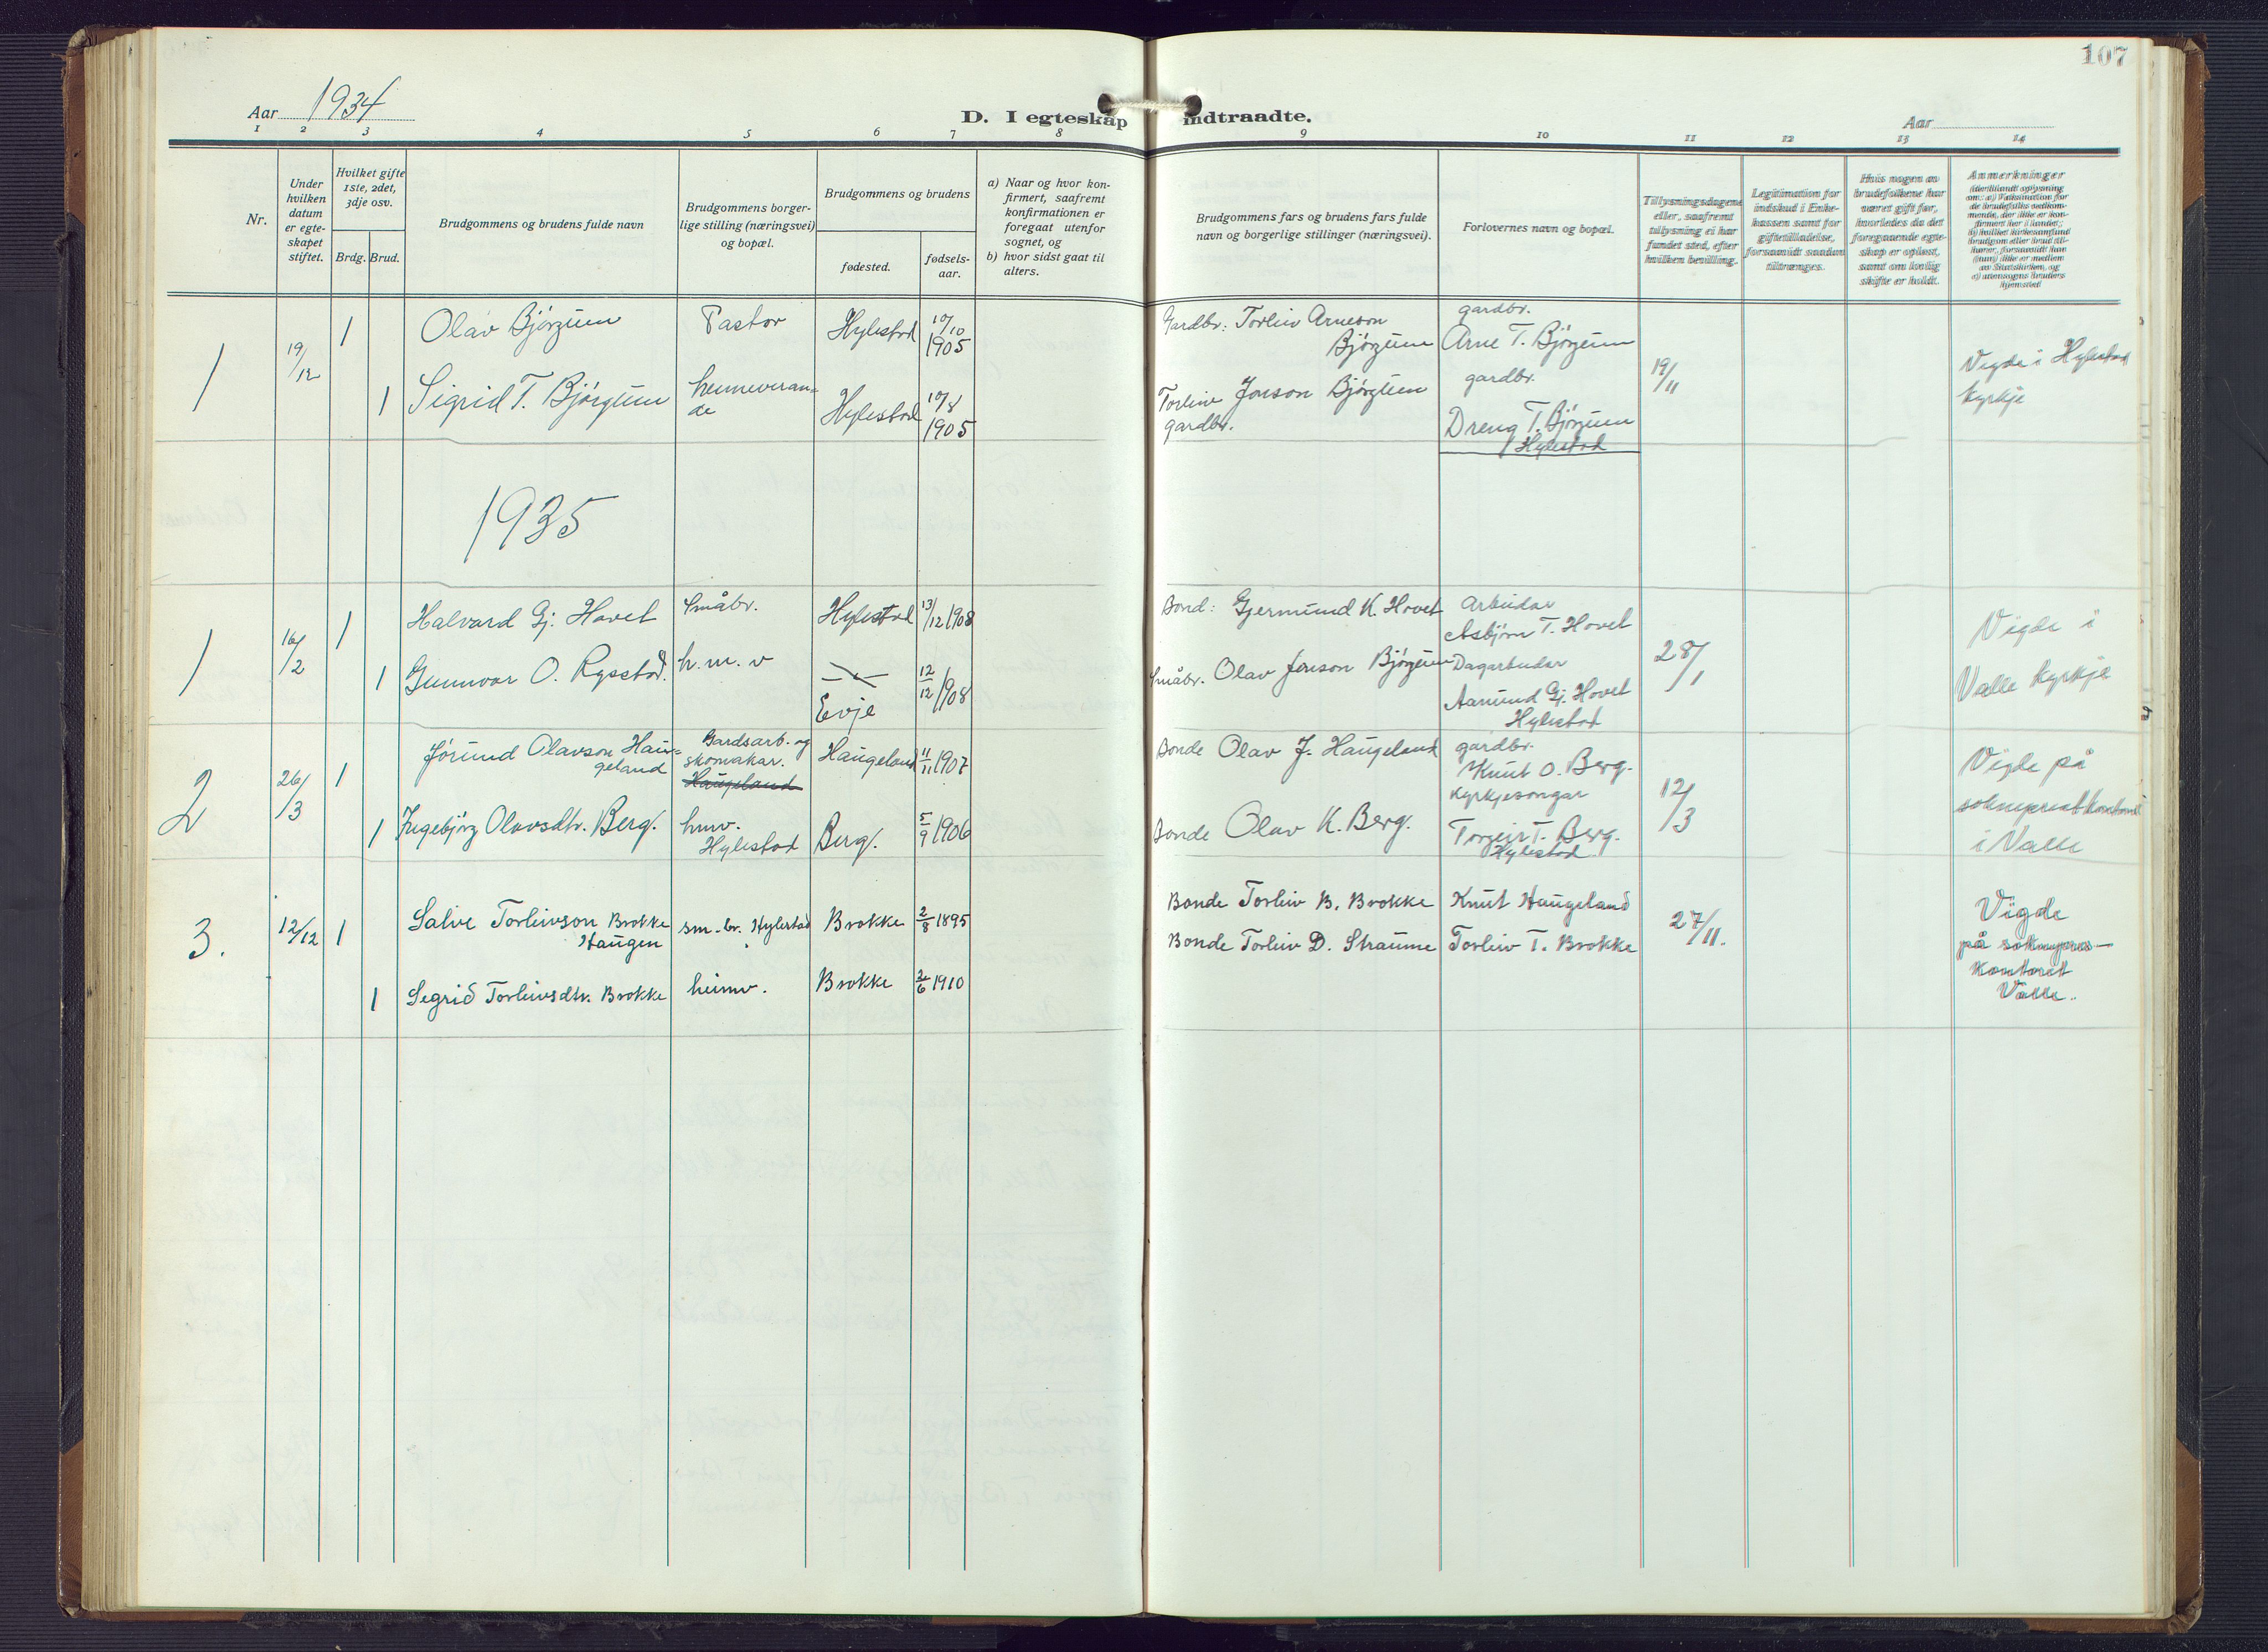 107
Aar 1934
D. I egteskap indtraadte.
Aar
1 2 3 4 5 6 7 8 9 10 11 12 13 14
Nr.
Under
hvilken
datum
er egte-
skapet
stiftet.
Hvilket gifte
1ste, 2det,
3dje osv.
Brdg. Brud.
Brudgommens og brudens fulde navn
Brudgommens borger-
lige stilling (næringsvei)
og bopæl.
Brudgommens og brudens
fødested.
fødsels-
aar.
a) Naar og hvor kon-
firmert, saafremt
konfirmationen er
foregaat utenfor
sognet, og
b) hvor sidst gaat til
alters.
Brudgommens fars og brudens fars fulde
navn og borgerlige stillinger (næringsvei).
Forlovernes navn og bopæl.
Tillysningsdagene
eller, saafremt
tillysning ei har
fundet sted, efter
hvilken bevilling.
Legitimation for
indskud i Enke-
kassen samt for
giftetilladelse,
forsaavidt saadan
tiltrænges.
Hvis nogen av
brudefolkene har
været gift før,
hvorledes da det
foregaaende egte-
skap er opløst,
samt om lovlig
skifte er holdt.
Anmerkninger
1
19/12
1
Olav Bjørgum
Pastor
Hylestad
10/10
1905
Gardbr: Torleiv Arneson
Bjørgum
gardbr.
Arne T. Bjørgum
19/11
Vigde i Hylestad
kyrkje
1
Sigrid T. Bjørgum
heimeveran-
de
Hylestad
10/8
1905
Torleiv Jonson Bjørgum
gardbr.
gardbr.
Dreng T. Bjørgum
Hylestad
1935
1
16/2
1
Halvard Gj. Hovet
Småbr.
Hylestad
13/12 1908
Bond: Gjermund K. Hovet
Arbeidar
Asbjørn T. Hovet
28/1
Vigde i
Valle kyrkje
1
Gunnvor O. Rysstad.
h.m.v
Evje
12/12 1908
Småbr. Olav Jonson Bjørgum
Dagarbeidar
Aamund Gj. Hovet
Hylestad
2
26/3
1
Jørund Olavson Hau-
geland
Gardsarb. og
skomakar.
Haugeland
Haugeland
11/11 1907
Bonde Olav J. Haugeland
gardbr.
Knut O. Berg.
12/3
Vigde på
sokneprestkontoret
i Valle
1
Ingebjørg Olavsdtr. Berg.
hmv.
Hylestad
Berg.
5/9 1906
Bonde Olav K. Berg.
kyrkjesongar
Torgeir T. Berg.
Hylestad
3.
12/12
1
Salve Torleivson Brokke
Haugen
sm.br. Hylestad
Brokke
2/8 1895
Bonde Torleiv B. Brokke
Knut Haugeland
27/11.
Vigde
på soknepres-
kontoret
Valle.
Bonde Torleiv D. Straume
Torleiv T. Brokke
1
Segrid Torleivsdtr. Brokke
heimv.
Brokke
2/6 1910